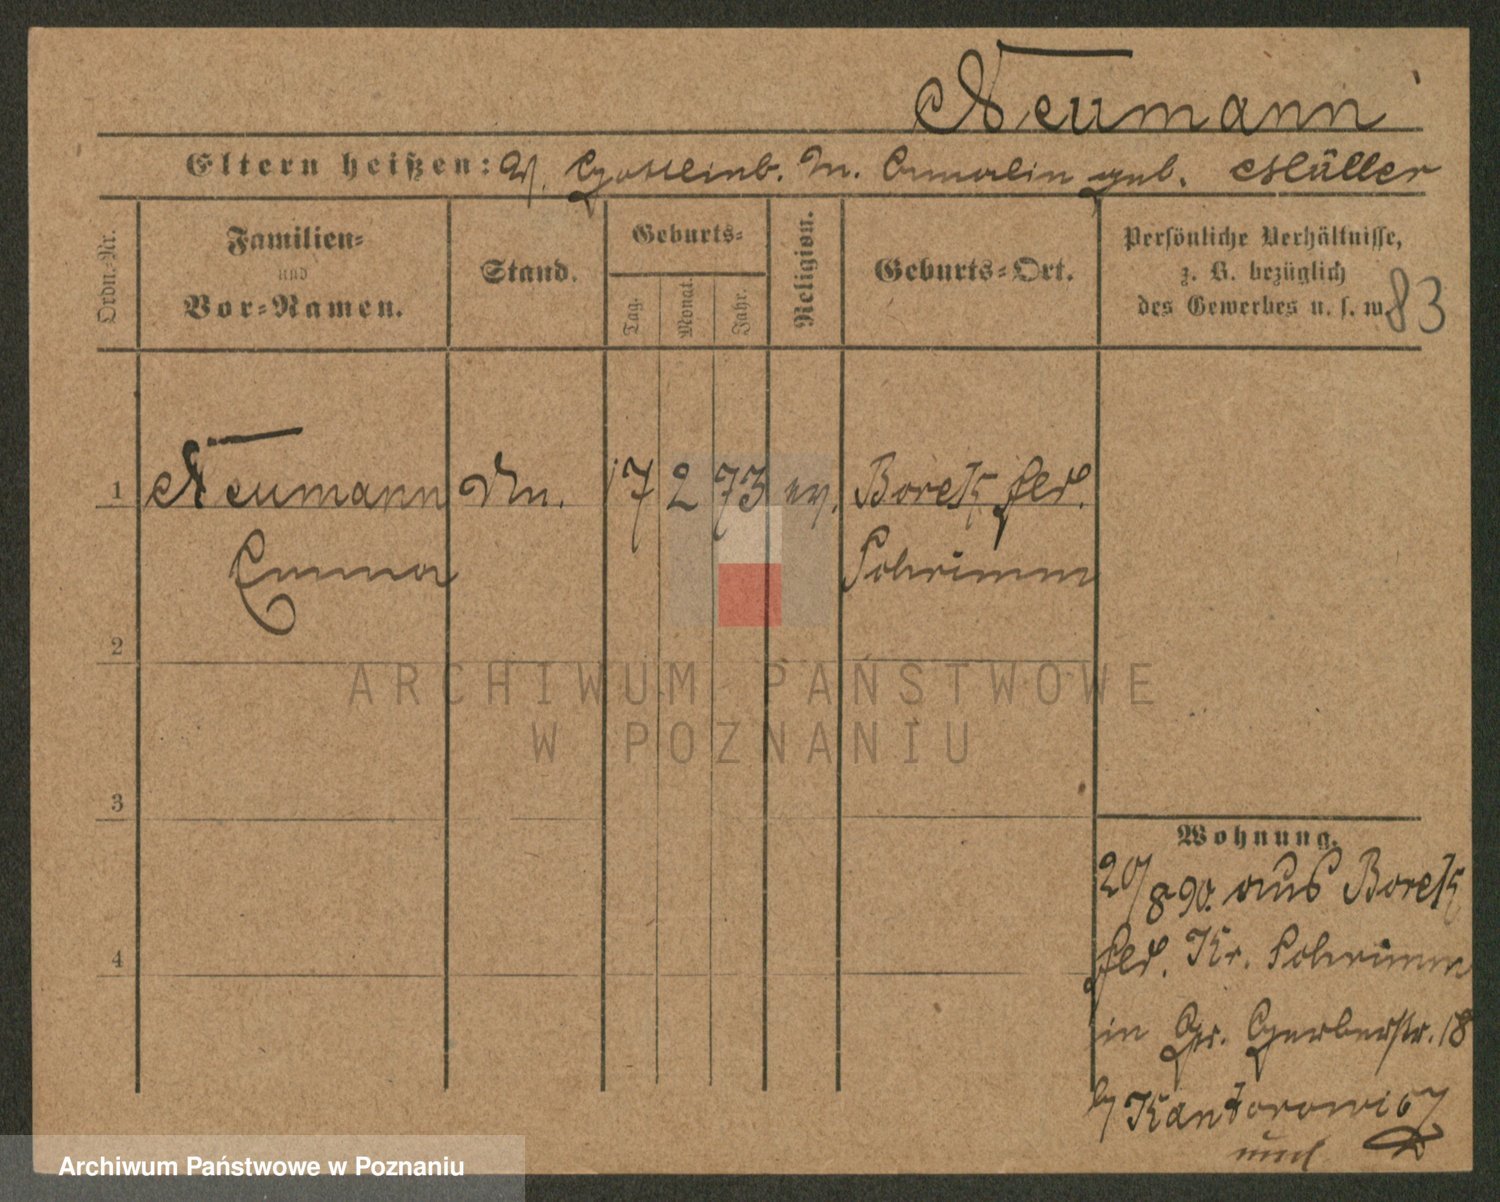 Neumann
Eltern heißen: V. Gottlieb. M. Amalin geb. Müller
Ordn.-Nr.
Familien-
und
Vor-Namen.
Stand.
Geburts-
Tag.
Monat.
Jahr.
Religion.
Geburts-Ort.
Persönliche Verhältnisse,
z. B. bezüglich
des Gewerbes u. s. w.
83
1 Neumann 17 2 73 ev. Borek
Emma Schrimm
2
3
4
Wohnung.
20/8 90. aus Borek
Kr. Schrimm
in Gr. Gerberstr. 18
b/ Kantorowicz
ARCHIWUM PAŃSTWOWE
W POZNANIU
Archiwum Państwowe w Poznaniu